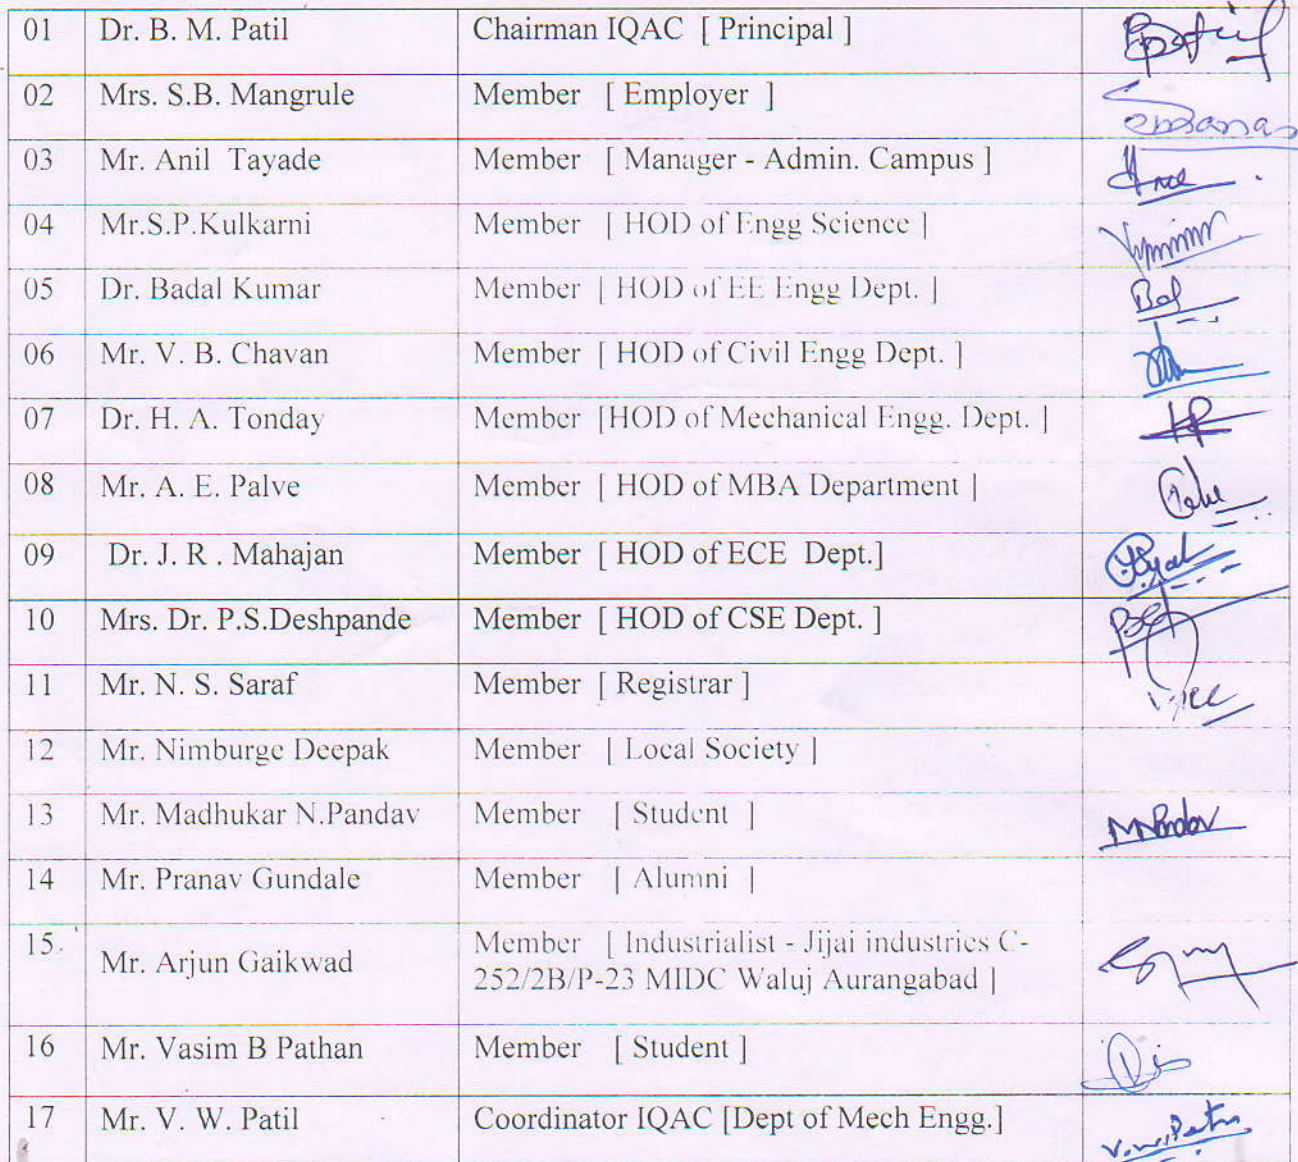 01 Dr. B. M. Patil Chairman IQAC [ Principal ]
02 Mrs. S.B. Mangrule Member [ Employer ]
03 Mr. Anil Tayade Member [ Manager - Admin. Campus ]
04 Mr.S.P.Kulkarni Member [ HOD of Engg Science ]
05 Dr. Badal Kumar Member [ HOD of EE Engg Dept. ]
06 Mr. V. B. Chavan Member [ HOD of Civil Engg Dept. ]
07 Dr. H. A. Tonday Member [HOD of Mechanical Engg. Dept. ]
08 Mr. A. E. Palve Member [ HOD of MBA Department ]
09 Dr. J. R . Mahajan Member [ HOD of ECE Dept.]
10 Mrs. Dr. P.S.Deshpande Member [ HOD of CSE Dept. ]
11 Mr. N. S. Saraf Member [ Registrar ]
12 Mr. Nimburge Deepak Member [ Local Society ]
13 Mr. Madhukar N.Pandav Member [ Student ]
14 Mr. Pranav Gundale Member [ Alumni ]
15. Mr. Arjun Gaikwad Member [ Industrialist - Jijai industries C-
252/2B/P-23 MIDC Waluj Aurangabad ]
16 Mr. Vasim B Pathan Member [ Student ]
17 Mr. V. W. Patil Coordinator IQAC [Dept of Mech Engg.]